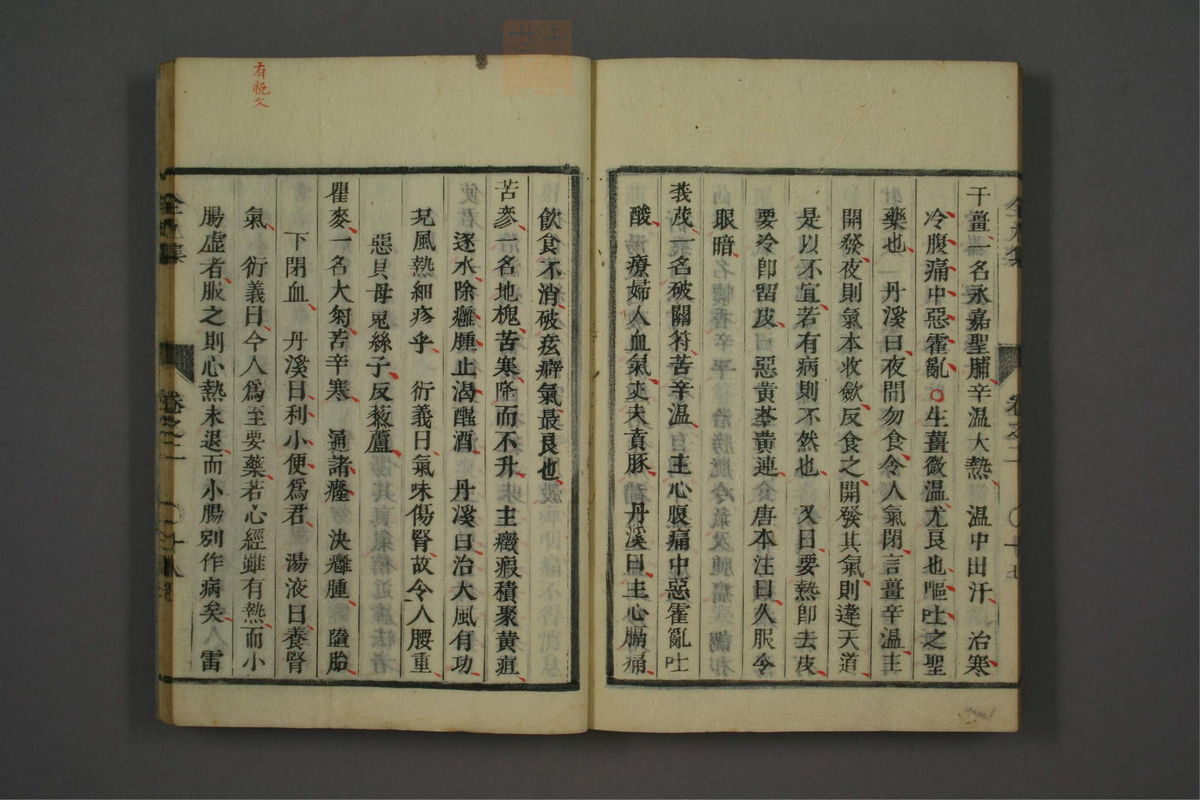 干薑一名永嘉聖脯辛温大熱 温中出汗 治寒
冷腹痛中惡霍亂○生薑微温尤良也嘔吐之聖
藥也 丹溪曰夜間勿食令人氣閉言薑辛温主
開發夜則氣本收歛反食之開發其氣則違天道
是以不宜若有病則不然也 又曰要熱卽去皮
要冷卽留皮 惡黄芩黄連 唐本注曰久服令
眼暗
莪茂一名破關符苦辛温 主心腹痛中惡霍亂吐
酸 療婦人血氣丈夫賁豚 丹溪曰主心膈痛
飲食不消破痃癖氣最良也
苦參一名地槐苦寒降而不升 主癥瘕積聚黄疸
逐水除癰腫止渴醒酒 丹溪曰治大風有功
况風熱細疹乎 衍義曰氣味傷腎故令人腰重
惡貝母兎絲子反藜蘆
瞿麥一名大匊苦辛寒 通諸癃 決癰腫 墮胎
下閉血 丹溪曰利小便爲君 湯液曰養腎
氣 衍義曰今人爲至要藥若心經雖有熱而小
腸虚者服之則心熱未退而小腸別作病矣 雷
有脱文
卷之二
十八